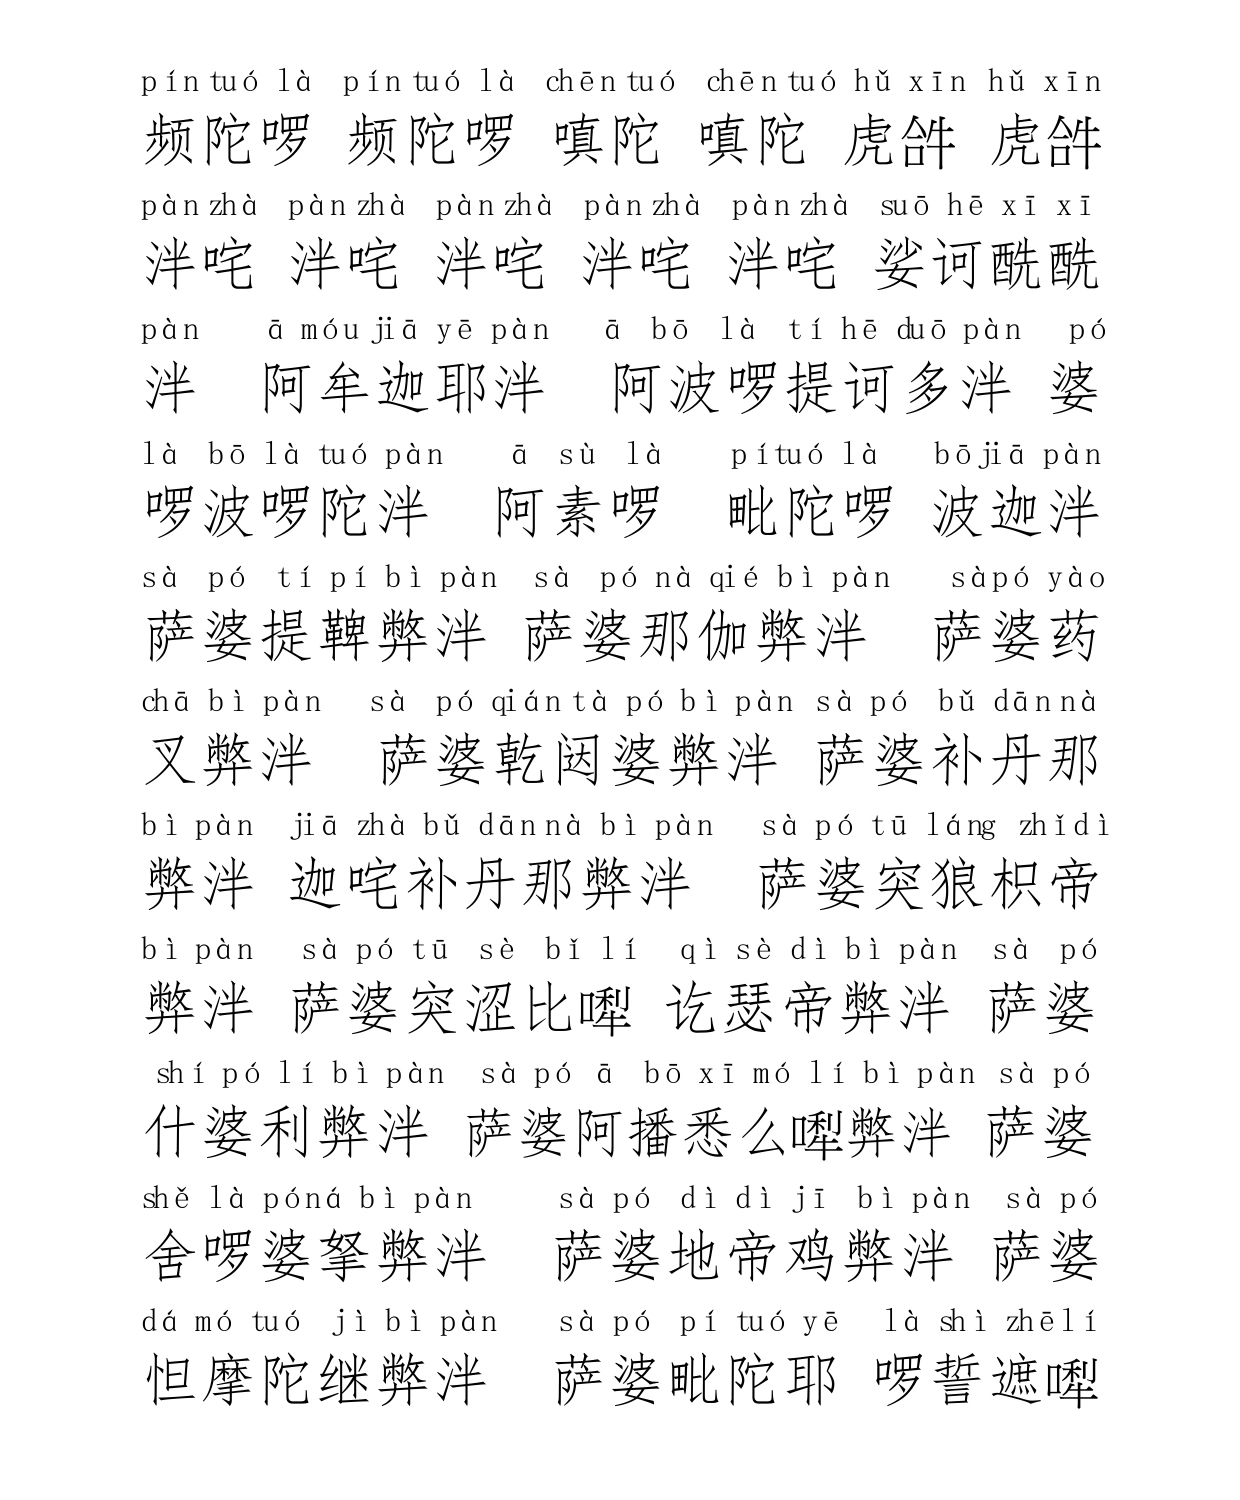 pín tuó là pín tuó là chēn tuó chēn tuó hǔ xīn hǔ xīn
频陀啰 频陀啰 嗔陀 嗔陀 虎𤙖 虎𤙖
pàn zhà pàn zhà pàn zhà pàn zhà pàn zhà suō hē xī xī
泮咤 泮咤 泮咤 泮咤 泮咤 娑诃酰酰
pàn ā móu jiā yē pàn ā bō là tí hē duō pàn pó
泮 阿牟迦耶泮 阿波啰提诃多泮 婆
là bō là tuó pàn ā sù là pí tuó là bō jiā pàn
啰波啰陀泮 阿素啰 毗陀啰 波迦泮
sà pó tí pí bì pàn sà pó nà qié bì pàn sà pó yào
萨婆提鞞弊泮 萨婆那伽弊泮 萨婆药
chā bì pàn sà pó qián tà pó bì pàn sà pó bǔ dān nà
叉弊泮 萨婆乾闼婆弊泮 萨婆补丹那
bì pàn jiā zhà bǔ dān nà bì pàn sà pó tū láng zhǐ dì
弊泮 迦咤补丹那弊泮 萨婆突狼枳帝
bì pàn sà pó tū sè bǐ lí qì sè dì bì pàn sà pó
弊泮 萨婆突涩比㘑 讫瑟帝弊泮 萨婆
shí pó lí bì pàn sà pó ā bō xī mó lí bì pàn sà pó
什婆利弊泮 萨婆阿播悉么㘑弊泮 萨婆
shě là pó ná bì pàn sà pó dì dì jī bì pàn sà pó
舍啰婆拏弊泮 萨婆地帝鸡弊泮 萨婆
dá mó tuó jì bì pàn sà pó pí tuó yē là shì zhē lí
怛摩陀继弊泮 萨婆毗陀耶 啰誓遮㘑